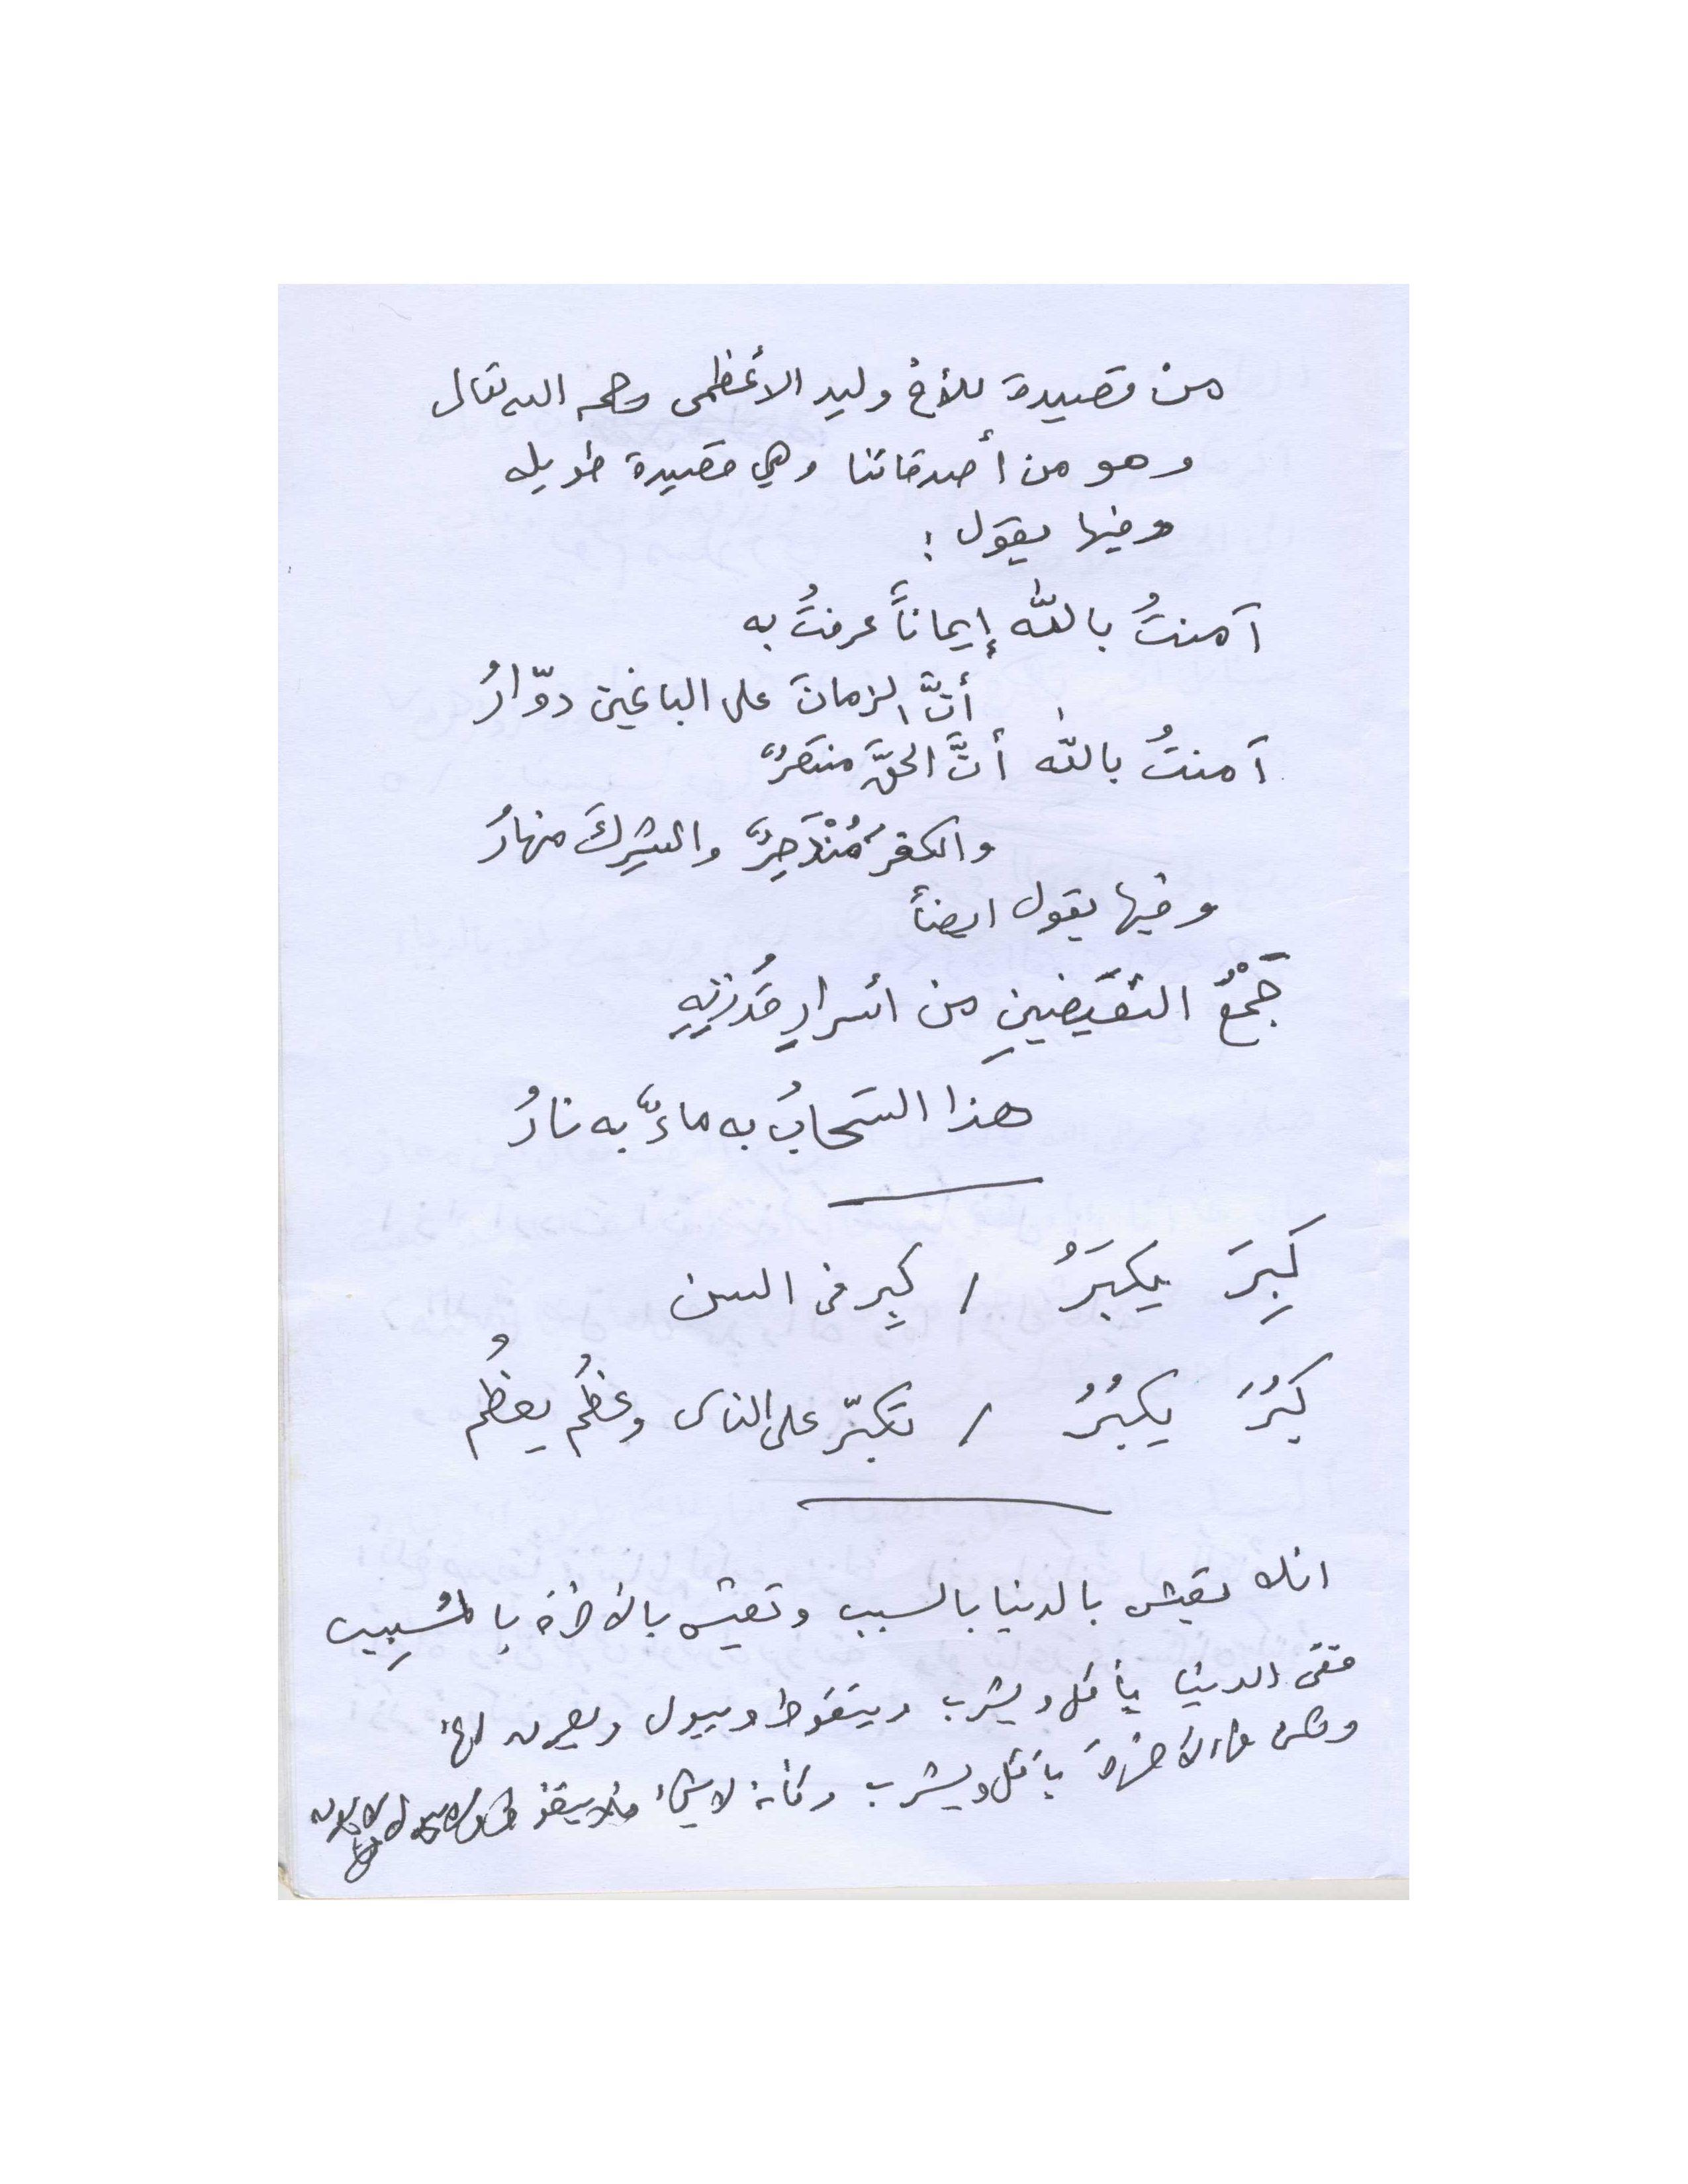 من قصيدة للأخ وليد الأعظمي رحمه الله تعالى
وهو من أصدقائنا وهي قصيدة طويله
وفيها يقول :
آمنتُ باللّٰه إيماناً عرفتُ به
أنَّ الزمانَ على الباغين دوّارُ
آمنتُ باللّٰه أنَّ الحقَّ منتصرٌ
والكفرُ مُنْدَحِرٌ والشِركَ منهارُ
وفيها يقول ايضاً
جَمْعُ النقَيضينِ من اسرارِ قُدرَتِهِ
هَذا السَحابُ به ماءٌ به نارُ
كَبِرَ يكبَرُ / كَبِر في السن
كَبُرَ يكبُرُ / تكبّر على الناس وعظُم يعظُم
انك تعيش بالدنيا بالسبب وتعيش بالآخرة بالمُسبِب
ففي الدنيا يأكل ويشرب ويتغوط ويبول
ولكن في الآخرة يأكل ويشرب وكأنه لا شيء فلا يتغوط